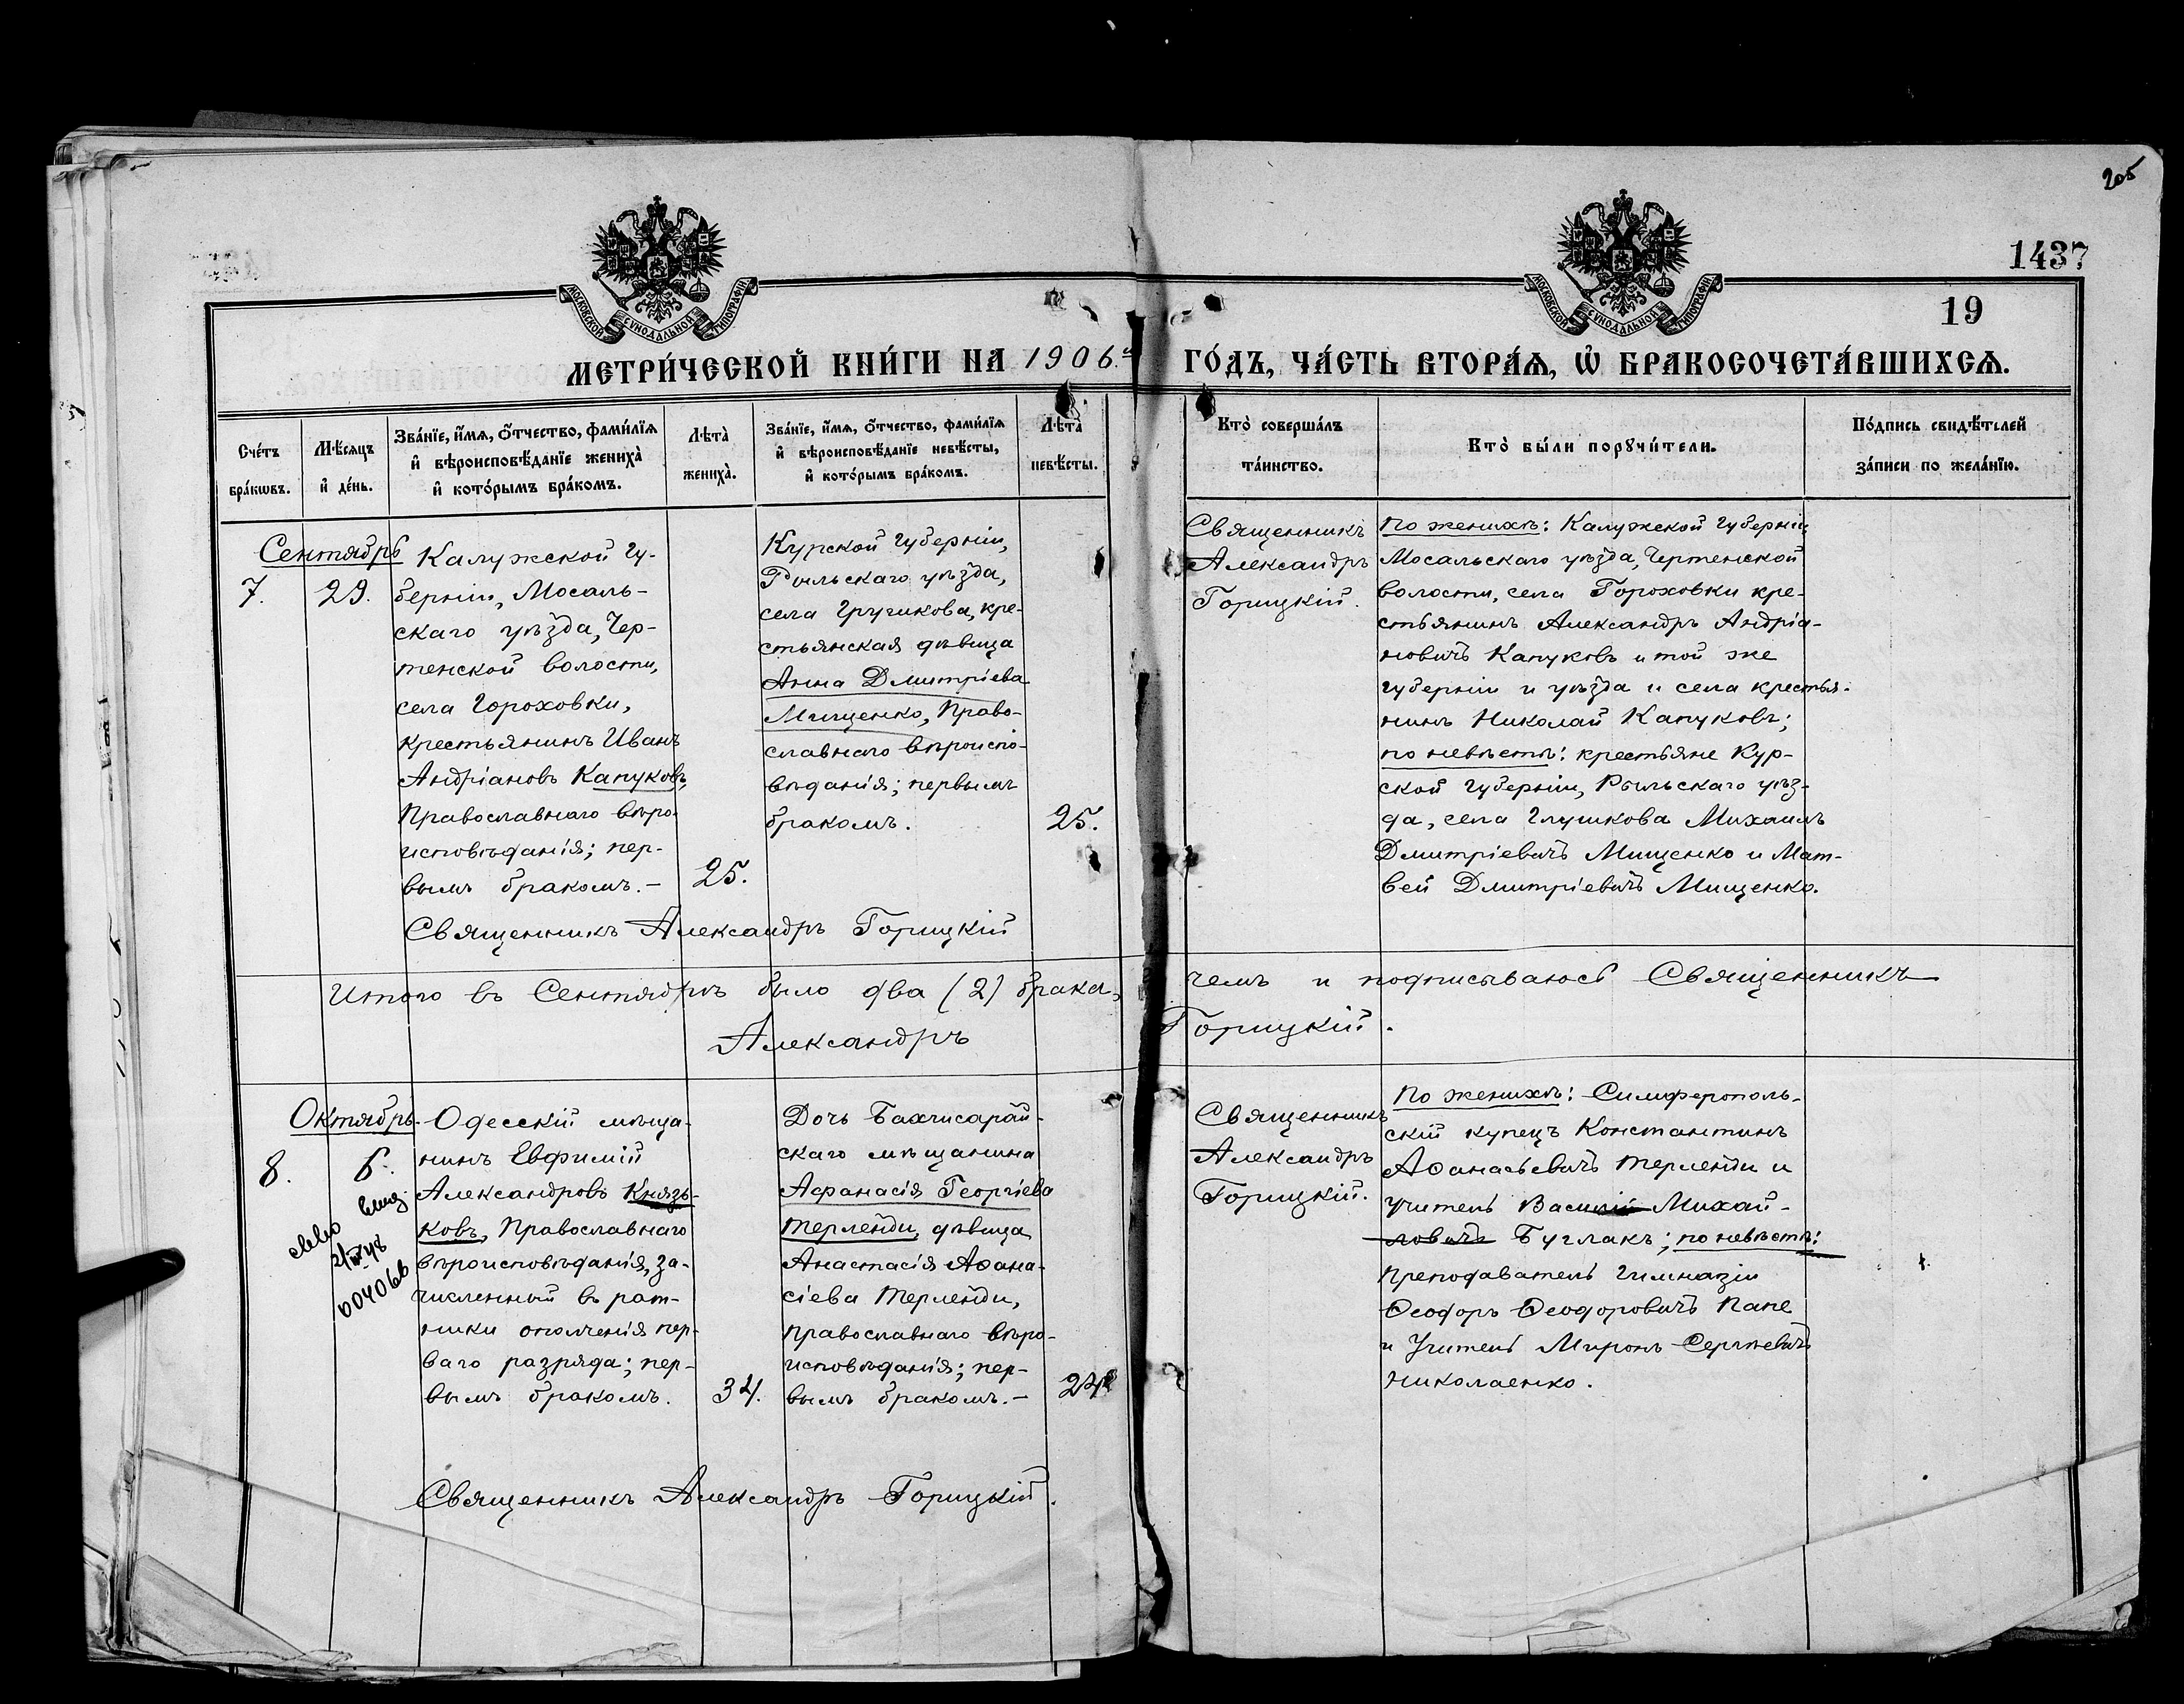 205
1437
19
МОСКОВСКОЙ СѴНОДАЛЬНОЙ ТИПОГРАФІИ
МОСКОВСКОЙ СѴНОДАЛЬНОЙ ТИПОГРАФІИ
МЕТРИ́ЧЕСКОЙ КНИ́ГИ НА 1906.й ГО́ДЪ, ЧА́СТЬ ВТОРА́Ѧ, Ѡ҆ БРАКОСОЧЕТА́ВШИХСѦ.
Сче́тъ
бра́кѡвъ.
Мѣ́сѧцъ
и҆ де́нь.
Зва́нїе, и҆́мѧ, ѻ҆́тчество, фами́лїѧ
и҆ вѣроисповѣ́данїе жениха̀
и҆ кото́рымъ бра́комъ.
Лѣта̀
жениха̀.
Зва́нїе, и҆́мѧ, ѻ҆́тчество, фами́лїѧ
и҆ вѣроисповѣ́данїе невѣ́сты,
и҆ кото́рымъ бра́комъ.
Лѣта̀
невѣ́сты.
Кто̀ соверша́лъ
та́инство.
Кто̀ бы́ли порꙋчи́тели.
По́дпись свидѣ́телей
за́писи по жела́нїю.
Сентябрь
7.
29.
Калужской Гу-
берніи, Мосаль-
скаго уѣзда, Чер-
тенской волости,
села Гороховки,
крестьянинъ Иванъ
Андріановъ Капуковъ,
Православнаго вѣро-
исповѣданія; пер-
вымъ бракомъ.-
25.
Курской Губерніи,
Рыльскаго уѣзда,
села Гручикова, кре-
стьянская дѣвица
Анна Дмитріева
Мищенко, Право-
славнаго вѣроиспо-
вѣданія; первымъ
бракомъ.
25.
Священникъ
Александръ
Горицкій.
По женихѣ: Калужской Губерніи,
Мосальскаго уѣзда, Чертенской
волости, села Гороховки кре-
стьянинъ Александръ Андріа-
новичъ Капуковъ и той же
Губерніи и уѣзда и села крестья-
нинъ Николай Капуковъ;
по невѣстѣ: крестьяне Кур-
ской Губерніи, Рыльскаго уѣз-
да, села Глушкова Михаилъ
Дмитріевичъ Мищенко и Мат-
вей Дмитріевичъ Мищенко.
Священникъ Александръ Горицкій
Итого въ Сентябрѣ было два (2) брака, чемъ и подписываюсь Священникъ
Александръ Горицкій.
Октябрь.
8.
004066
Одесскій мѣща-
нинъ Евфимій
Александровъ Князь-
ковъ, Православнаго
вѣроисповѣданія, за-
численный въ рат-
ники ополченія пер-
ваго разряда; пер-
вымъ бракомъ.
34.
Дочь Бахчисарай-
скаго мѣщанина
Афанасія Георгіева
Терленди, дѣвица
Анастасія Аѳана-
сіева Терленди,
православнаго вѣро-
исповѣданія; пер-
вымъ бракомъ.-
24
Священникъ
Александръ
Горицкій.
По женихѣ: Симферополь-
скій купецъ Константинъ
Аѳанасьевичъ Терленди и
учитель Василій Михай-
ловичъ Буглакъ; по невѣстѣ:
Преподаватель Гимназіи
Ѳеодоръ Ѳеодоровичъ Папе
и Учитель Миронъ Сергѣевичъ
Николаенко.
Священникъ Александръ Горицкій.